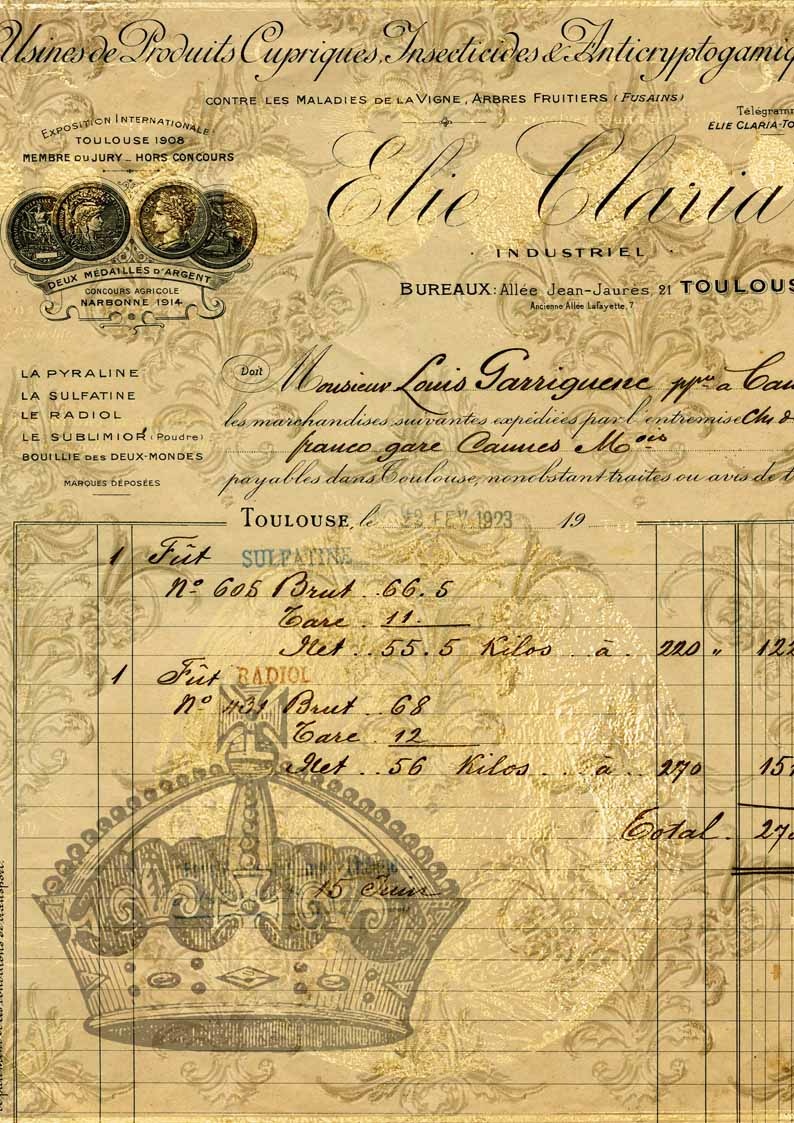 Usines de Produits Cupriques, Insecticides & Anticryptogamiq
CONTRE LES MALADIES DE LA VIGNE, ARBRES FRUITIERS (FUSAINS)
Télégramm
ELIE CLARIA-TO
EXPOSITION INTERNATIONALE
TOULOUSE 1908
MEMBRE DU JURY _ HORS CONCOURS
Elie Claria
INDUSTRIEL
DEUX MÉDAILLES D'ARGENT
CONCOURS AGRICOLE
NARBONNE 1914
BUREAUX: Allée Jean-Jaurès, 21 TOULOUS
Ancienne Allée Lafayette, 7
LA PYRALINE
LA SULFATINE
LE RADIOL
LE SUBLIMIOR (Poudre)
BOUILLIE DES DEUX-MONDES
MARQUES DÉPOSÉES
Doit Monsieur Louis Garriguenc ppre à Cau
les marchandises suivantes expédiées par l'entremise Ch. d
franco gare Caunes Mois
payables dans Toulouse, nonobstant traites ou avis de t
TOULOUSE, le 22 FEV 1923 19
1 Fût SULFATINE
No 605 Brut . . 66.5
Tare . 11.
Net . . 55.5 Kilos . . à . 220 " 122
1 Fût RADIOL
No 431 Brut . . 68
Tare . . 12
Net . . 56 Kilos . . . à . . 270 151
Total . 27
15 Juin